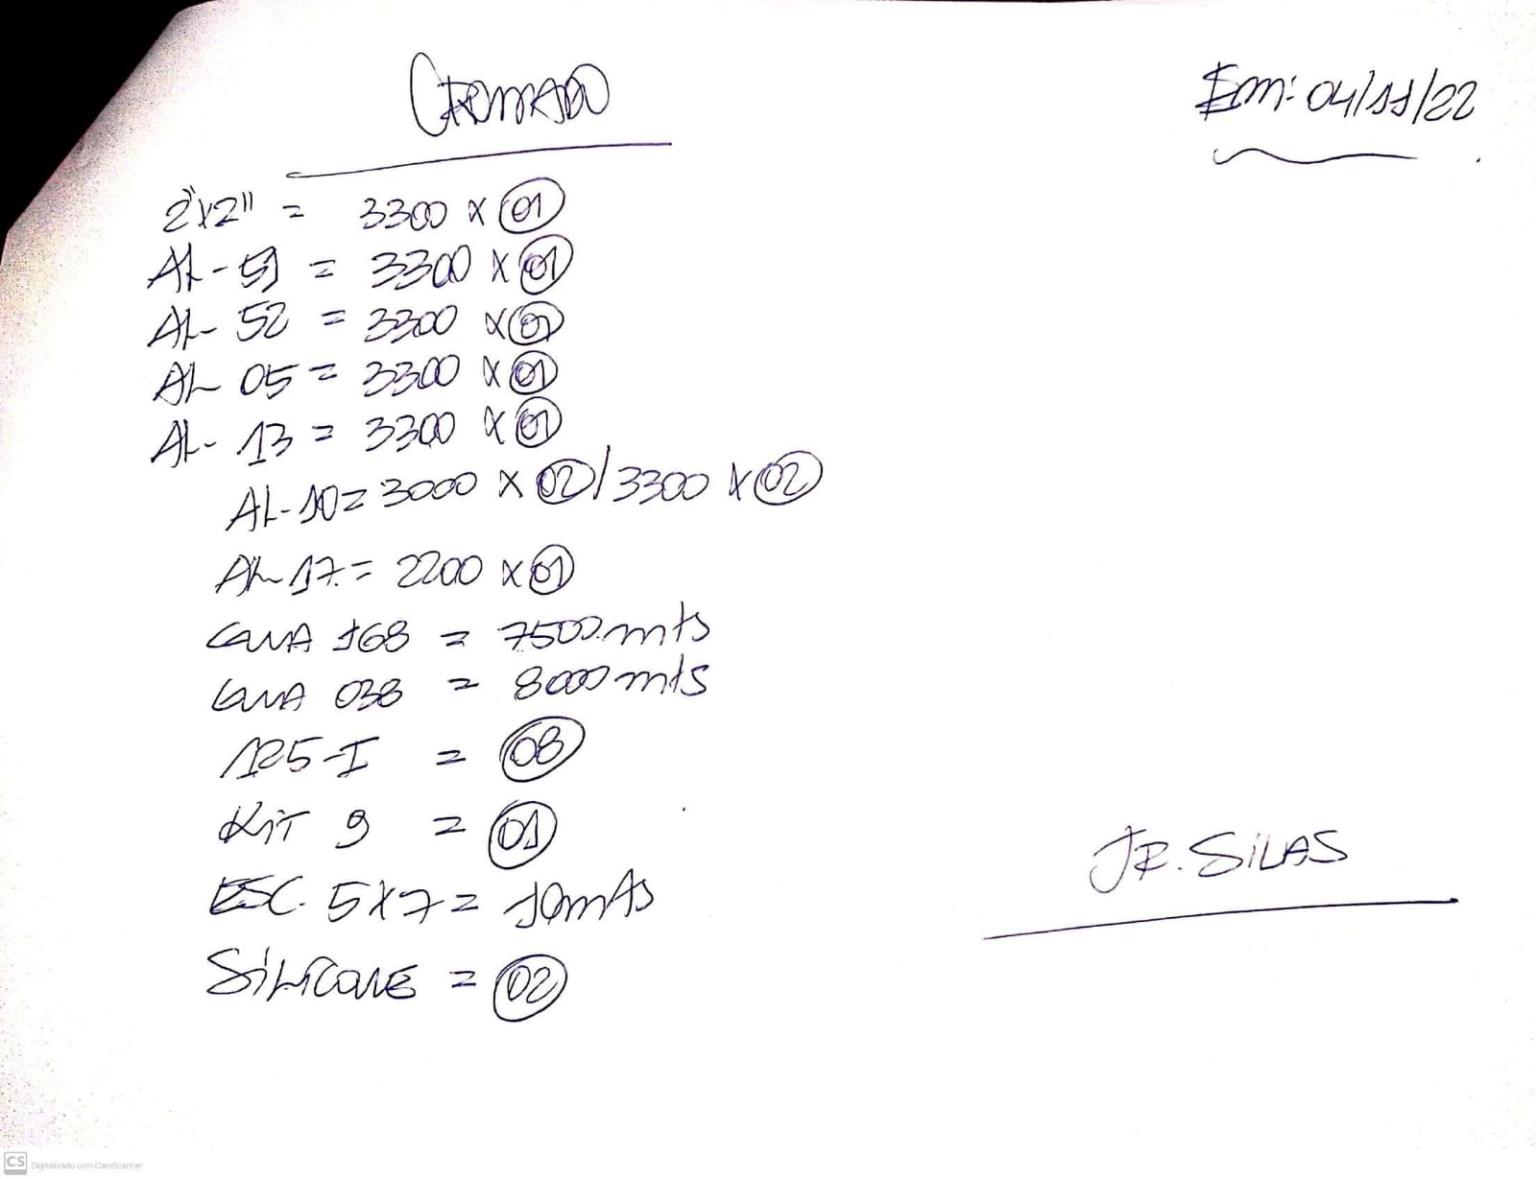 CROMADO
Em: 04/11/22
2"x2" = 3300 x 01
AL-59 = 3300 x 01
AL-52 = 3300 x 01
AL 05 = 3300 x 01
AL-13 = 3300 x 01
AL-10 = 3000 x 02 / 3300 x 02
AL 17 = 2200 x 01
168 = 7500 mts
038 = 8000 mts
125-I = 08
KIT 9 = 01
JR. SILAS
ESC. 5x7 = 10mts
SILICONE = 02
CS Digitalizado com CamScanner